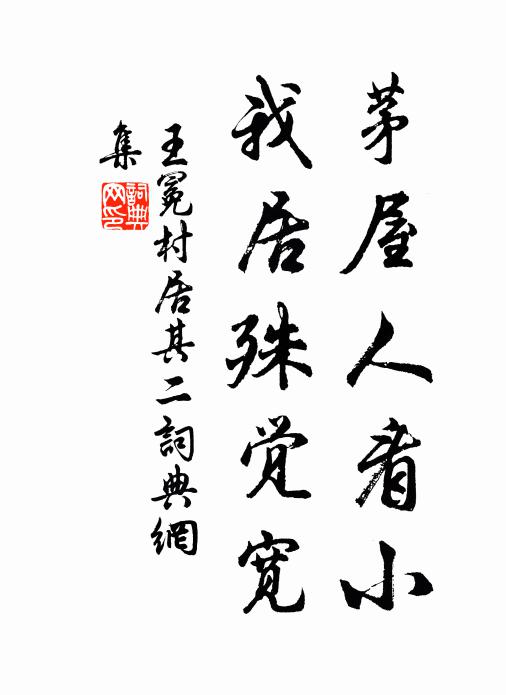 茅屋人看小
我居殊觉宽
王冕村居其二詞典網
集
詞典
网印